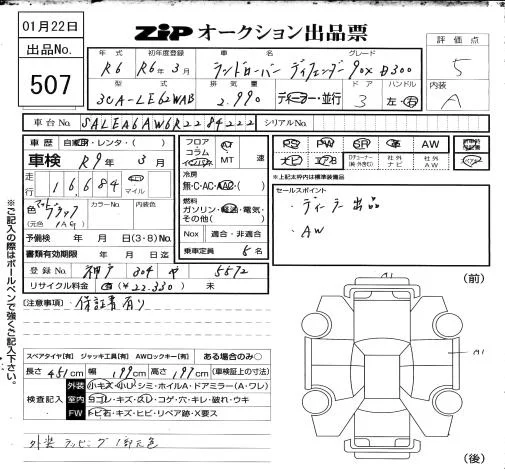 01月22日
ZIP オークション出品票
出品No.
507
評価点
5
内装
A
年式 初年度登録 車名 グレード
R6 R6年3月 ランドローバー ディフェンダー90X D300
型式 排気量 ドア ハンドル
3CA-LE62WAB 2.990 ディーラー・並行 3 左・右
車台No. SALEA6AW6R2284222 シリアルNo.
車歴 自家用・レンタ・( )
車検 R9年3月
走行 16,684 km マイル
色 ブラック カラーNo. 内装色
(元色 1AG)
予備検 年 月 日(3・8)MO
書類有効期限 年 月 日迄
登録No. 神戸 304 5572
リサイクル料金 有(¥22.330) 未
フロア コラム インパネ AT MT 速
冷房 無・C・AC・AAC・( )
燃料 ガソリン・軽油・電気・その他( )
Nox 適合・非適合
乗車定員 5名
PS PW SR 革 AW
ナビ エアB Dチューナー(純・外含む) 社外ナビ 社外AW
※上記太枠内は標準装備品
セールスポイント
・ディーラー出品
・AW
注意事項 保証書有り
スペアタイヤ[有] ジャッキ工具[有] AWロックキー[有] ある場合のみ○
長さ 451cm 幅 199cm 高さ 197cm (車検証上の寸法)
検査記入
外装 小キズ・小U・シミ・ホイルA・ドアミラー(A・ワレ)
室内 ヨゴレ・キズ・スレ・コゲ・穴・キレ・破れ・ウキ
FW トビ石・キズ・ヒビ・リペア跡・X要ス
外装ラッピング
※ご記入の際はボールペンで強くご記入下さい。
(前)
A1
A1
(後)